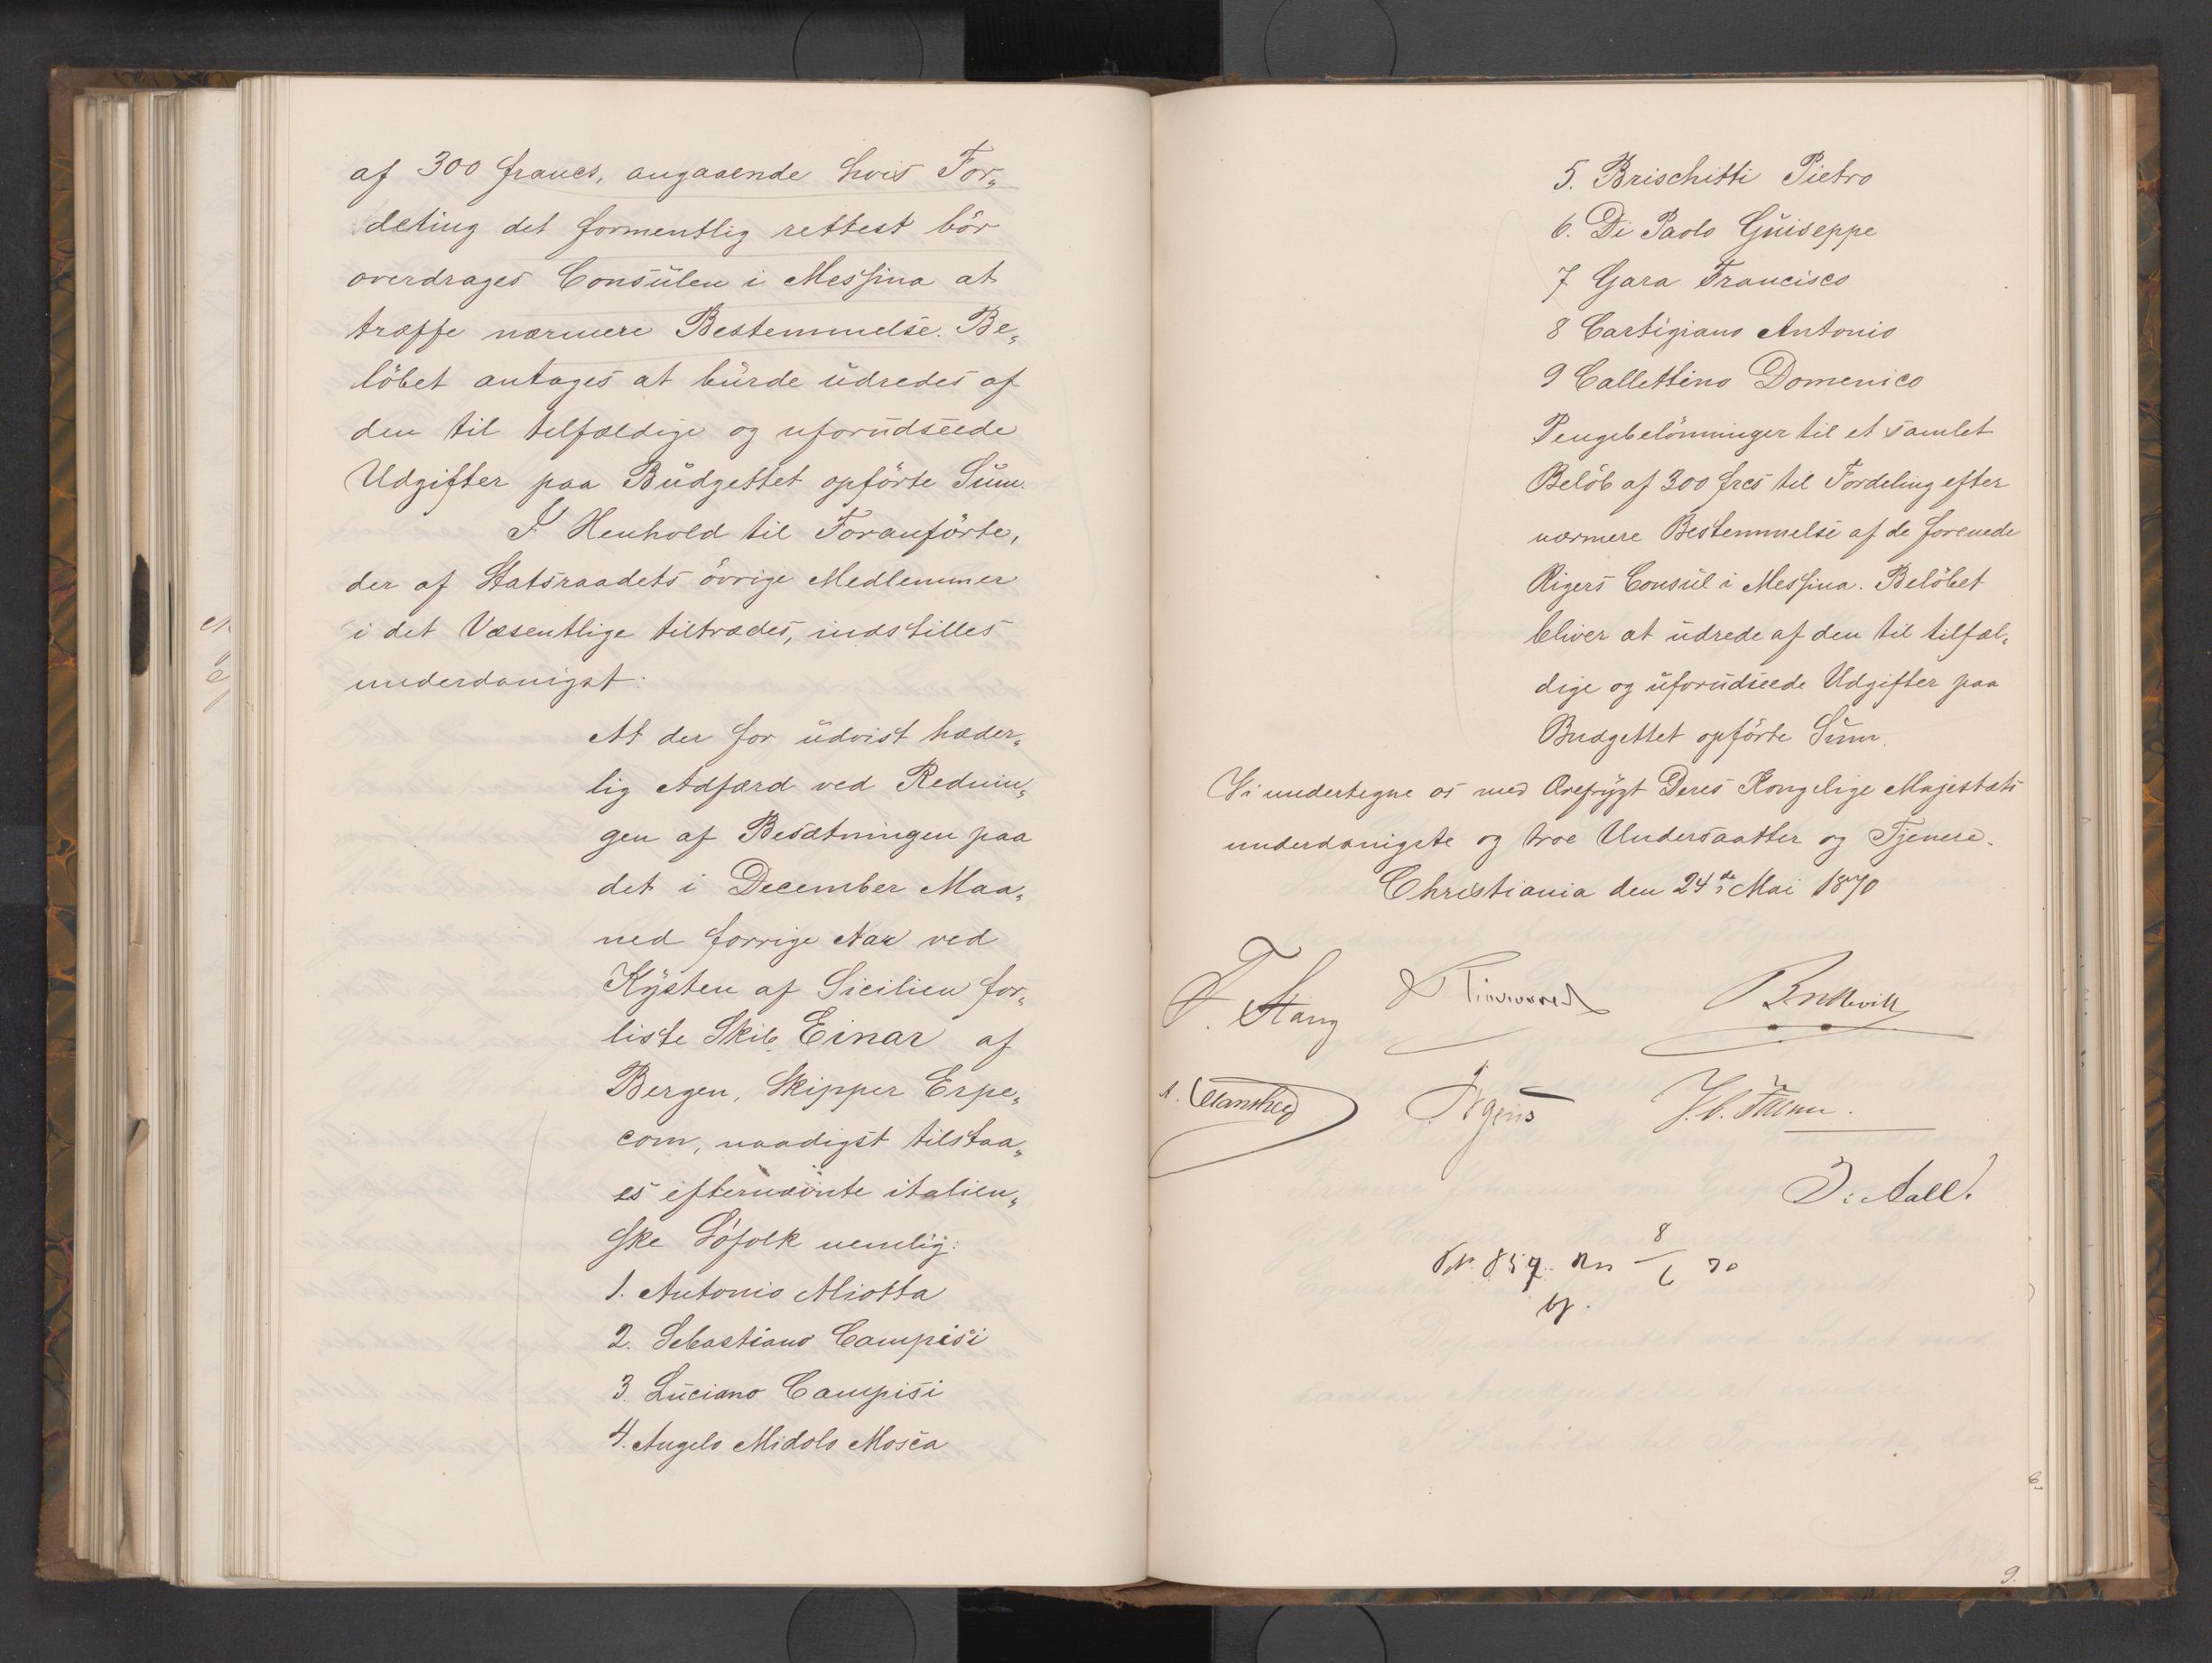 af 300 francs, angaaende hvis For„
deling det formentlig rettest bör
overdrages Consülen i Messina at
træffe nærmere Bestemmelse. Be„
löbet antages at bürde üdredes af
den til telfældige og uforüdseede
Udgifter paa Büdgettet opförte Süm.
I Henhold til Foranförte,
der af Statsraadets övrige Medlemmer
i det Væsentlige tiltrædes, indstilles
underdanigst:
At der for üdvist hæder„
lig Adfærd ved Rednin„
gen af Besætningen paa
det i December Maa„
ned forrige Aar ved
Kysten af Sicilien for„
liste Skib Einar af
Bergen, Skipper Erpe„
com, naadigst tilstaa„
es efternævnte italien„
ske Söfolk nemlig:
1. Antonio Aliotta
2. Sebastiano Campisi
3. Lüciano Campisi
4. Angelo Midolo Mosca
5. Brischitti Pietro
6. Di Paolo Guiseppe
7 Gara Francisco
8 Cartigiano Antonio
9 Callettino Domenico
Pengebelönninger til et samlet
Belöb af 300 frcs til Fordeling efter
nærmere Bestemmelse af de forenede
Rigers Consül i Messina. Belöbet
bliver at üdrede af den til tilfæl„
dige og üforüdseede Udgifter paa
Budgettet opförte Süm.
Vi undertegne os med Ærefrygt Deres Kongelige Majestæts
underdanigste og troe Undersaatter og Tjenere.
Christiania den 24de Mai 1870
F. Stang
Bretteville
Irgens
J. Aall.
8
857. 6 70
9.